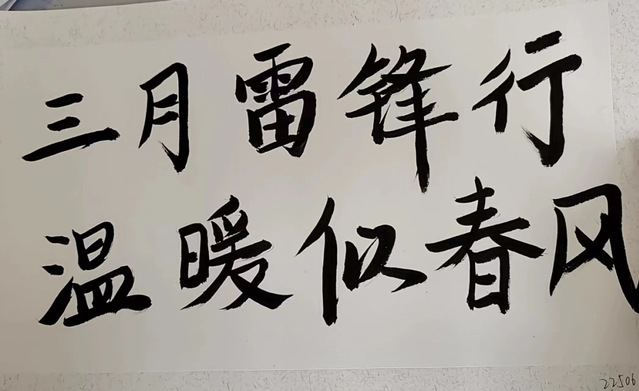 三月雷锋行
温暖似春风
22506